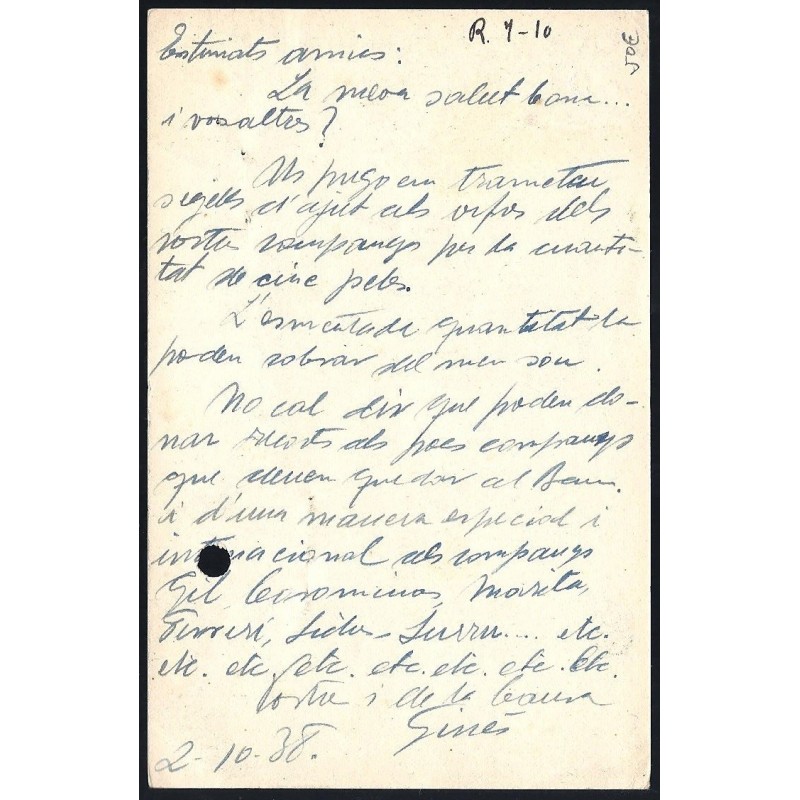 R. 7-10
JOE
Estimats amics:
La meva salut bona...
i vosaltres?
Us prego em trametau
segells d'ajut als orfes dels
vostres companys per la quanti-
tat de cinc peles.
L'esmentada quantitat la
poden cobrar del meu sou.
No cal dir que poden do-
nar records als pocs companys
que deuen quedar al Banc.
i d'una manera especial i
internacional als companys
Gil, Marita,
etc.
etc. etc. etc. etc. etc. etc. etc.
Vostre i de la Causa
Ginés
2-10-38.